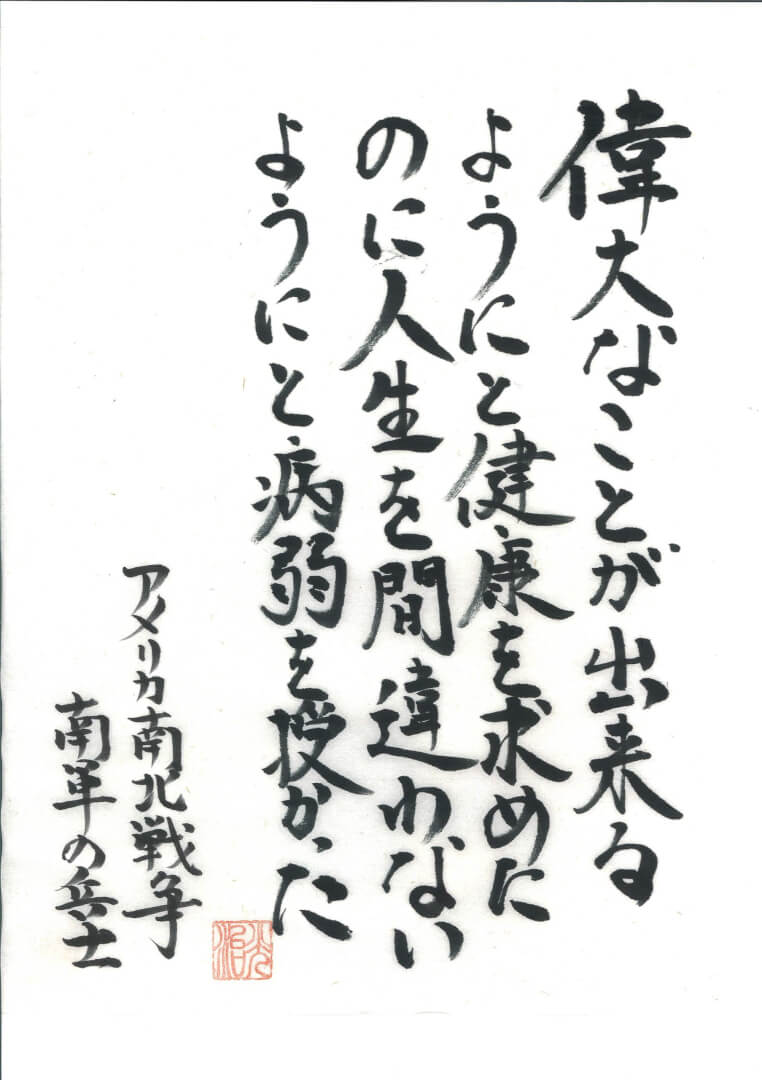 偉大なことが出来る
ようにと健康を求めた
のに人生を間違わない
ようにと病弱を授かった
アメリカ南北戦争
南軍の兵士